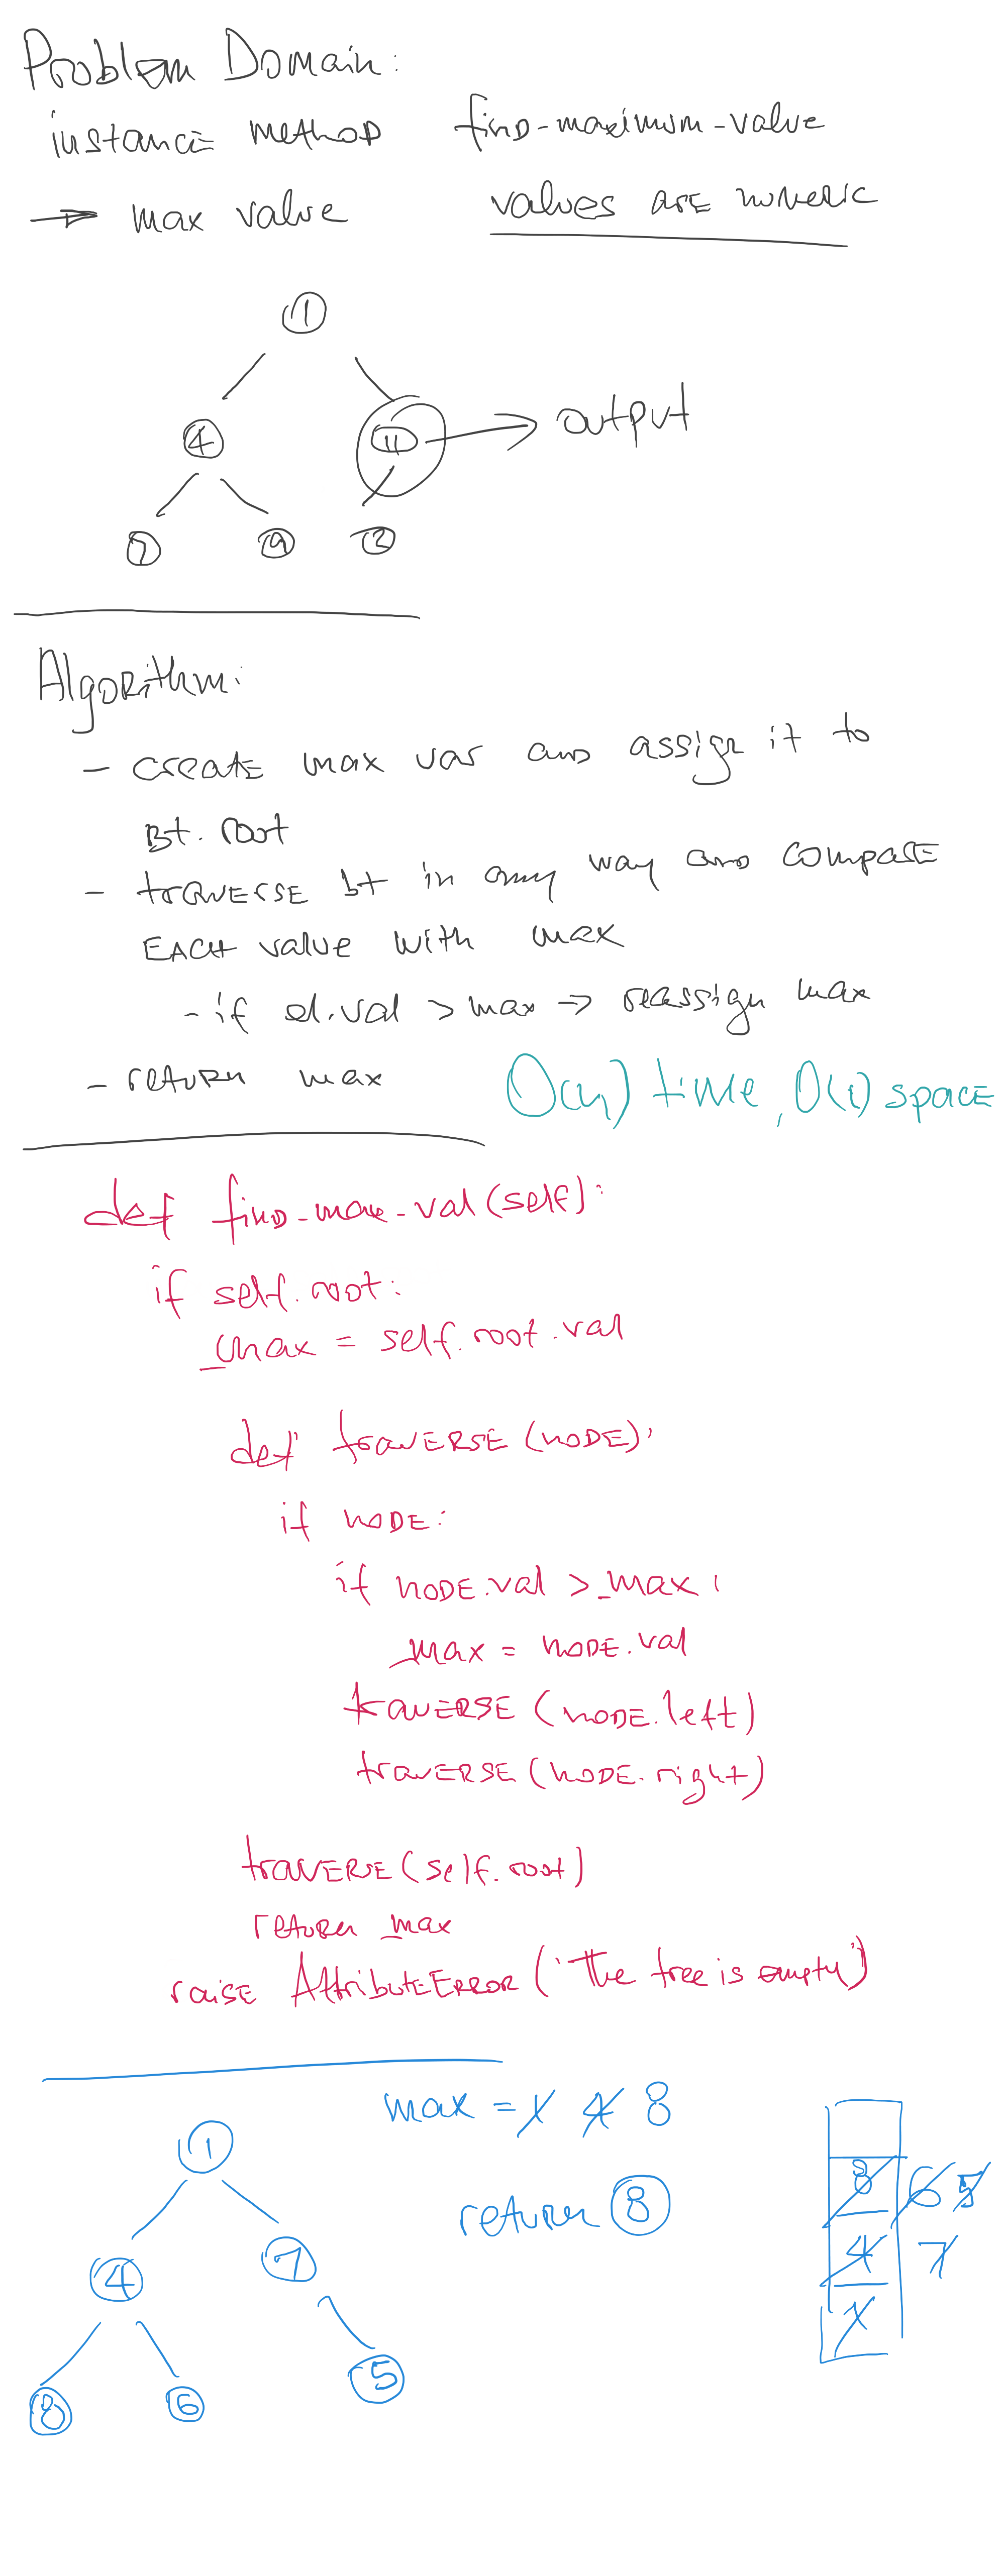 Problem Domain:
instance method find-maximum-value
→ max value values are numeric
1
4 11 → output
7 9 2
Algorithm:
- create max var and assign it to
Bt. root
- traverse bt in any way and compare
each value with max
- if el.val > max → reassign max
- return max O(n) time, O(1) space
def find-max-val(self):
if self.root:
_max = self.root.val
def traverse(node):
if node:
if node.val > _max:
_max = node.val
traverse(node.left)
traverse(node.right)
traverse(self.root)
return _max
raise AttributeError('The tree is empty')
max = 1 4 8
1
return 8
8 6 5
4 7
1
4 7
8 6 5